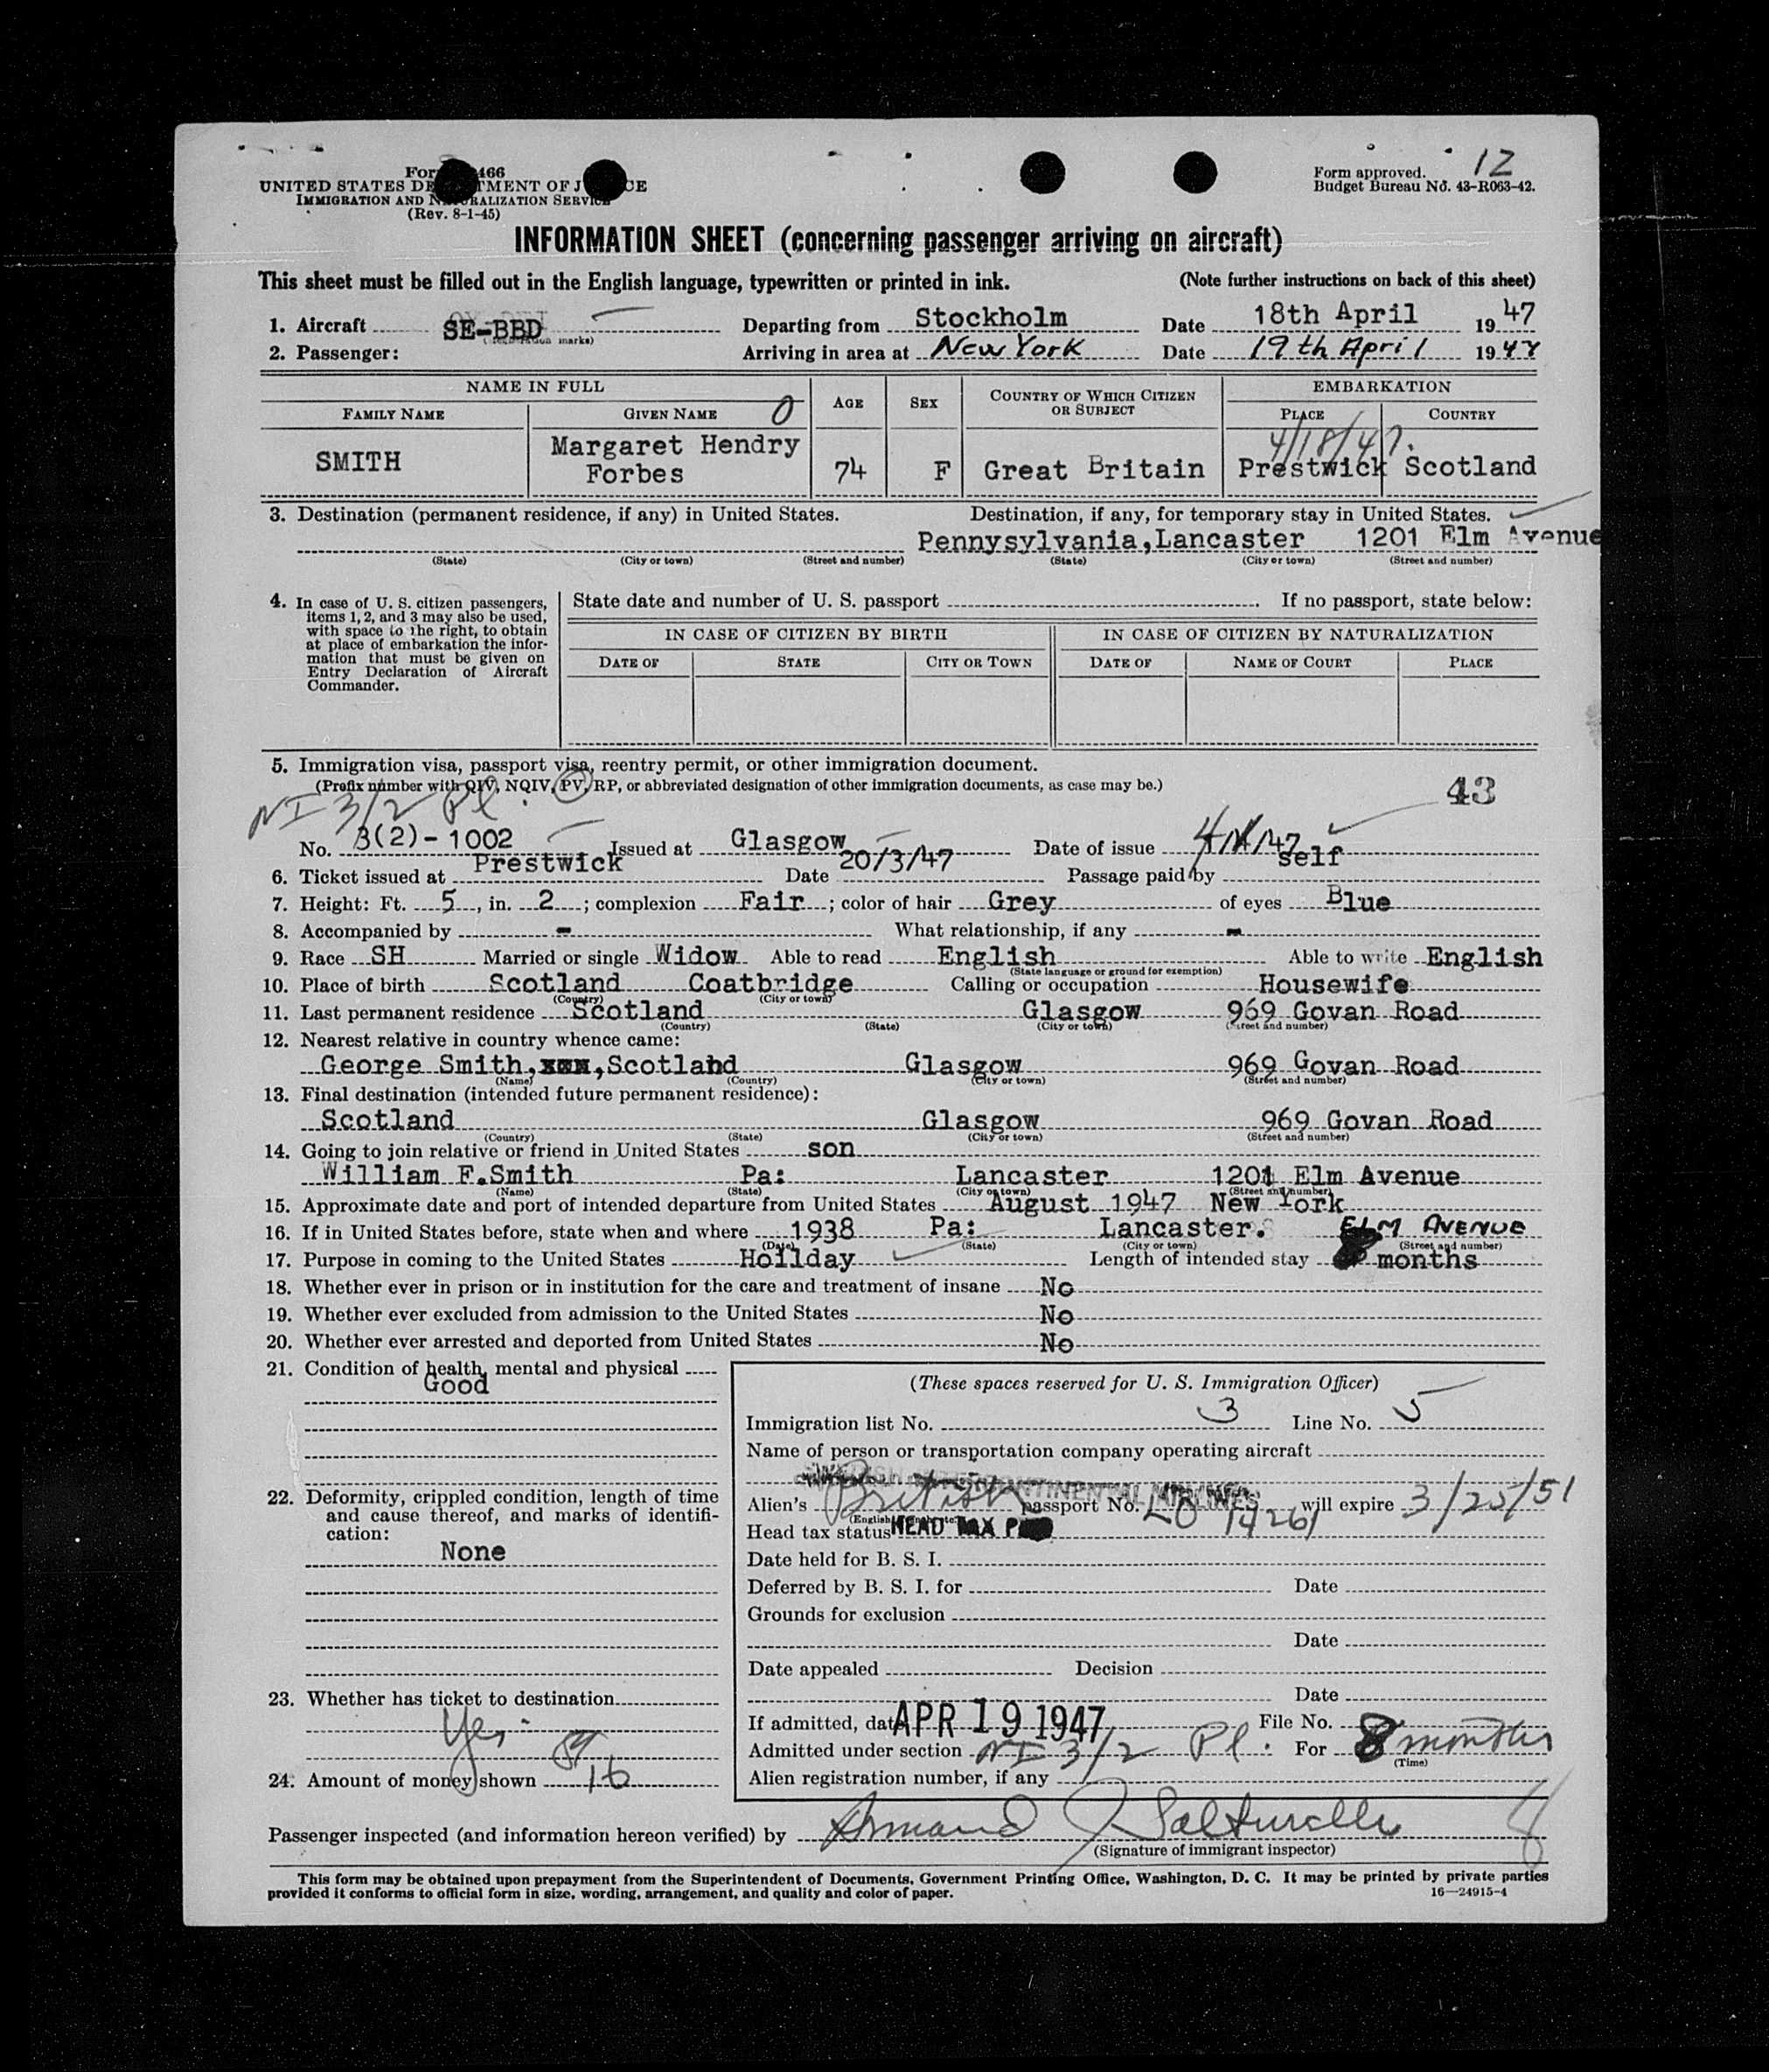 12
Form 466
UNITED STATES DEPARTMENT OF JUSTICE
IMMIGRATION AND NATURALIZATION SERVICE
(Rev. 8-1-45)
Form approved.
Budget Bureau No. 43-R063-42.
INFORMATION SHEET (concerning passenger arriving on aircraft)
This sheet must be filled out in the English language, typewritten or printed in ink. (Note further instructions on back of this sheet)
1. Aircraft SE-BBD Departing from Stockholm Date 18th April 1947
2. Passenger: Arriving in area at New York Date 19th April 1947
NAME IN FULL AGE SEX COUNTRY OF WHICH CITIZEN OR SUBJECT EMBARKATION
FAMILY NAME GIVEN NAME 0 PLACE COUNTRY
4/18/47.
SMITH Margaret Hendry Forbes 74 F Great Britain Prestwick Scotland
3. Destination (permanent residence, if any) in United States. Destination, if any, for temporary stay in United States.
Pennysylvania, Lancaster 1201 Elm Avenue
(State) (City or town) (Street and number) (State) (City or town) (Street and number)
4. In case of U. S. citizen passengers, items 1, 2, and 3 may also be used, with space to the right, to obtain at place of embarkation the information that must be given on Entry Declaration of Aircraft Commander.
State date and number of U. S. passport If no passport, state below:
IN CASE OF CITIZEN BY BIRTH IN CASE OF CITIZEN BY NATURALIZATION
DATE OF STATE CITY OR TOWN DATE OF NAME OF COURT PLACE
5. Immigration visa, passport visa, reentry permit, or other immigration document.
(Prefix number with QIV, NQIV, PV, RP, or abbreviated designation of other immigration documents, as case may be.) 43
NI 3/2 Pl.
No. 3(2)-1002 Issued at Glasgow Date of issue 4/4/47
6. Ticket issued at Prestwick Date 20/3/47 Passage paid by self
7. Height: Ft. 5, in. 2; complexion Fair; color of hair Grey of eyes Blue
8. Accompanied by - What relationship, if any -
9. Race SH Married or single Widow Able to read English Able to write English
(State language or ground for exemption)
10. Place of birth Scotland Coatbridge Calling or occupation Housewife
(Country) (City or town)
11. Last permanent residence Scotland Glasgow 969 Govan Road
(Country) (State) (City or town) (Street and number)
12. Nearest relative in country whence came:
George Smith, xxx, Scotland Glasgow 969 Govan Road
(Name) (Country) (City or town) (Street and number)
13. Final destination (intended future permanent residence):
Scotland Glasgow 969 Govan Road
(Country) (State) (City or town) (Street and number)
14. Going to join relative or friend in United States son
William F.Smith Pa: Lancaster 1201 Elm Avenue
(Name) (State) (City or town) (Street and number)
15. Approximate date and port of intended departure from United States August 1947 New York
16. If in United States before, state when and where 1938 Pa: Lancaster. ELM AVENUE
(Date) (State) (City or town) (Street and number)
17. Purpose in coming to the United States Holiday Length of intended stay months
18. Whether ever in prison or in institution for the care and treatment of insane No
19. Whether ever excluded from admission to the United States No
20. Whether ever arrested and deported from United States No
21. Condition of health, mental and physical
Good
(These spaces reserved for U. S. Immigration Officer)
Immigration list No. 3 Line No. 5
Name of person or transportation company operating aircraft
INTERCONTINENTAL AIRLINES
22. Deformity, crippled condition, length of time and cause thereof, and marks of identification:
None
Alien's British passport No. LO 14261 will expire 3/25/51
Head tax status HEAD TAX
Date held for B. S. I.
Deferred by B. S. I. for Date
Grounds for exclusion
Date
Date appealed Decision
Date
23. Whether has ticket to destination
Yes.
If admitted, date APR 19 1947 File No.
Admitted under section NI 3/2 Pl. For 8 months
(Time)
24. Amount of money shown 16
Alien registration number, if any
Passenger inspected (and information hereon verified) by Armand J
(Signature of immigrant inspector)
This form may be obtained upon prepayment from the Superintendent of Documents, Government Printing Office, Washington, D. C. It may be printed by private parties
provided it conforms to official form in size, wording, arrangement, and quality and color of paper. 16—24915-4